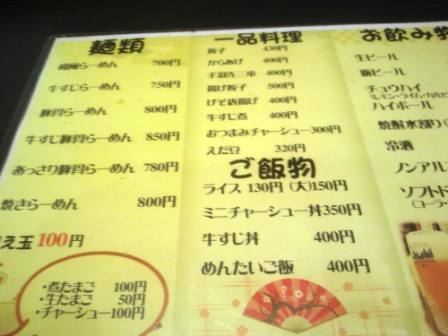 麺類
らーめん 700円
牛すじらーめん 750円
豚骨らーめん 800円
牛すじ豚骨らーめん 850円
あっさり豚骨らーめん 780円
焼きらーめん 800円
え玉 100円
・煮たまご 100円
・生たまご 50円
・チャーシュー100円
一品料理
餃子 430円
からあげ 400円
400円
揚げ餃子 500円
げそ唐揚げ 400円
牛すじ煮 400円
おつまみチャーシュー300円
えだ豆 320円
ご飯物
ライス 130円 (大)150円
ミニチャーシュー丼350円
牛すじ丼 400円
めんたいご飯 400円
お飲み物
生ビール
瓶ビール
チュウハイ
(レモン・ライム・カルピ
ハイボール
焼酎水割り(
冷酒
ノンアル
ソフトド
(コーラ・
Asahi